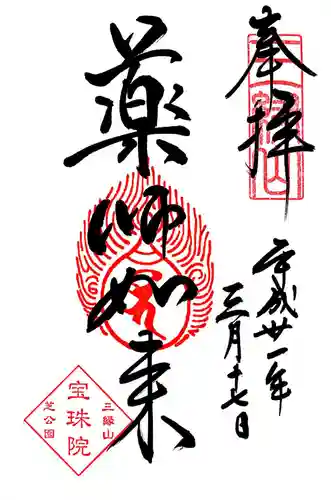 奉拝
平成卅一年
三月十七日
薬師如来
三縁山
宝珠院
芝公園